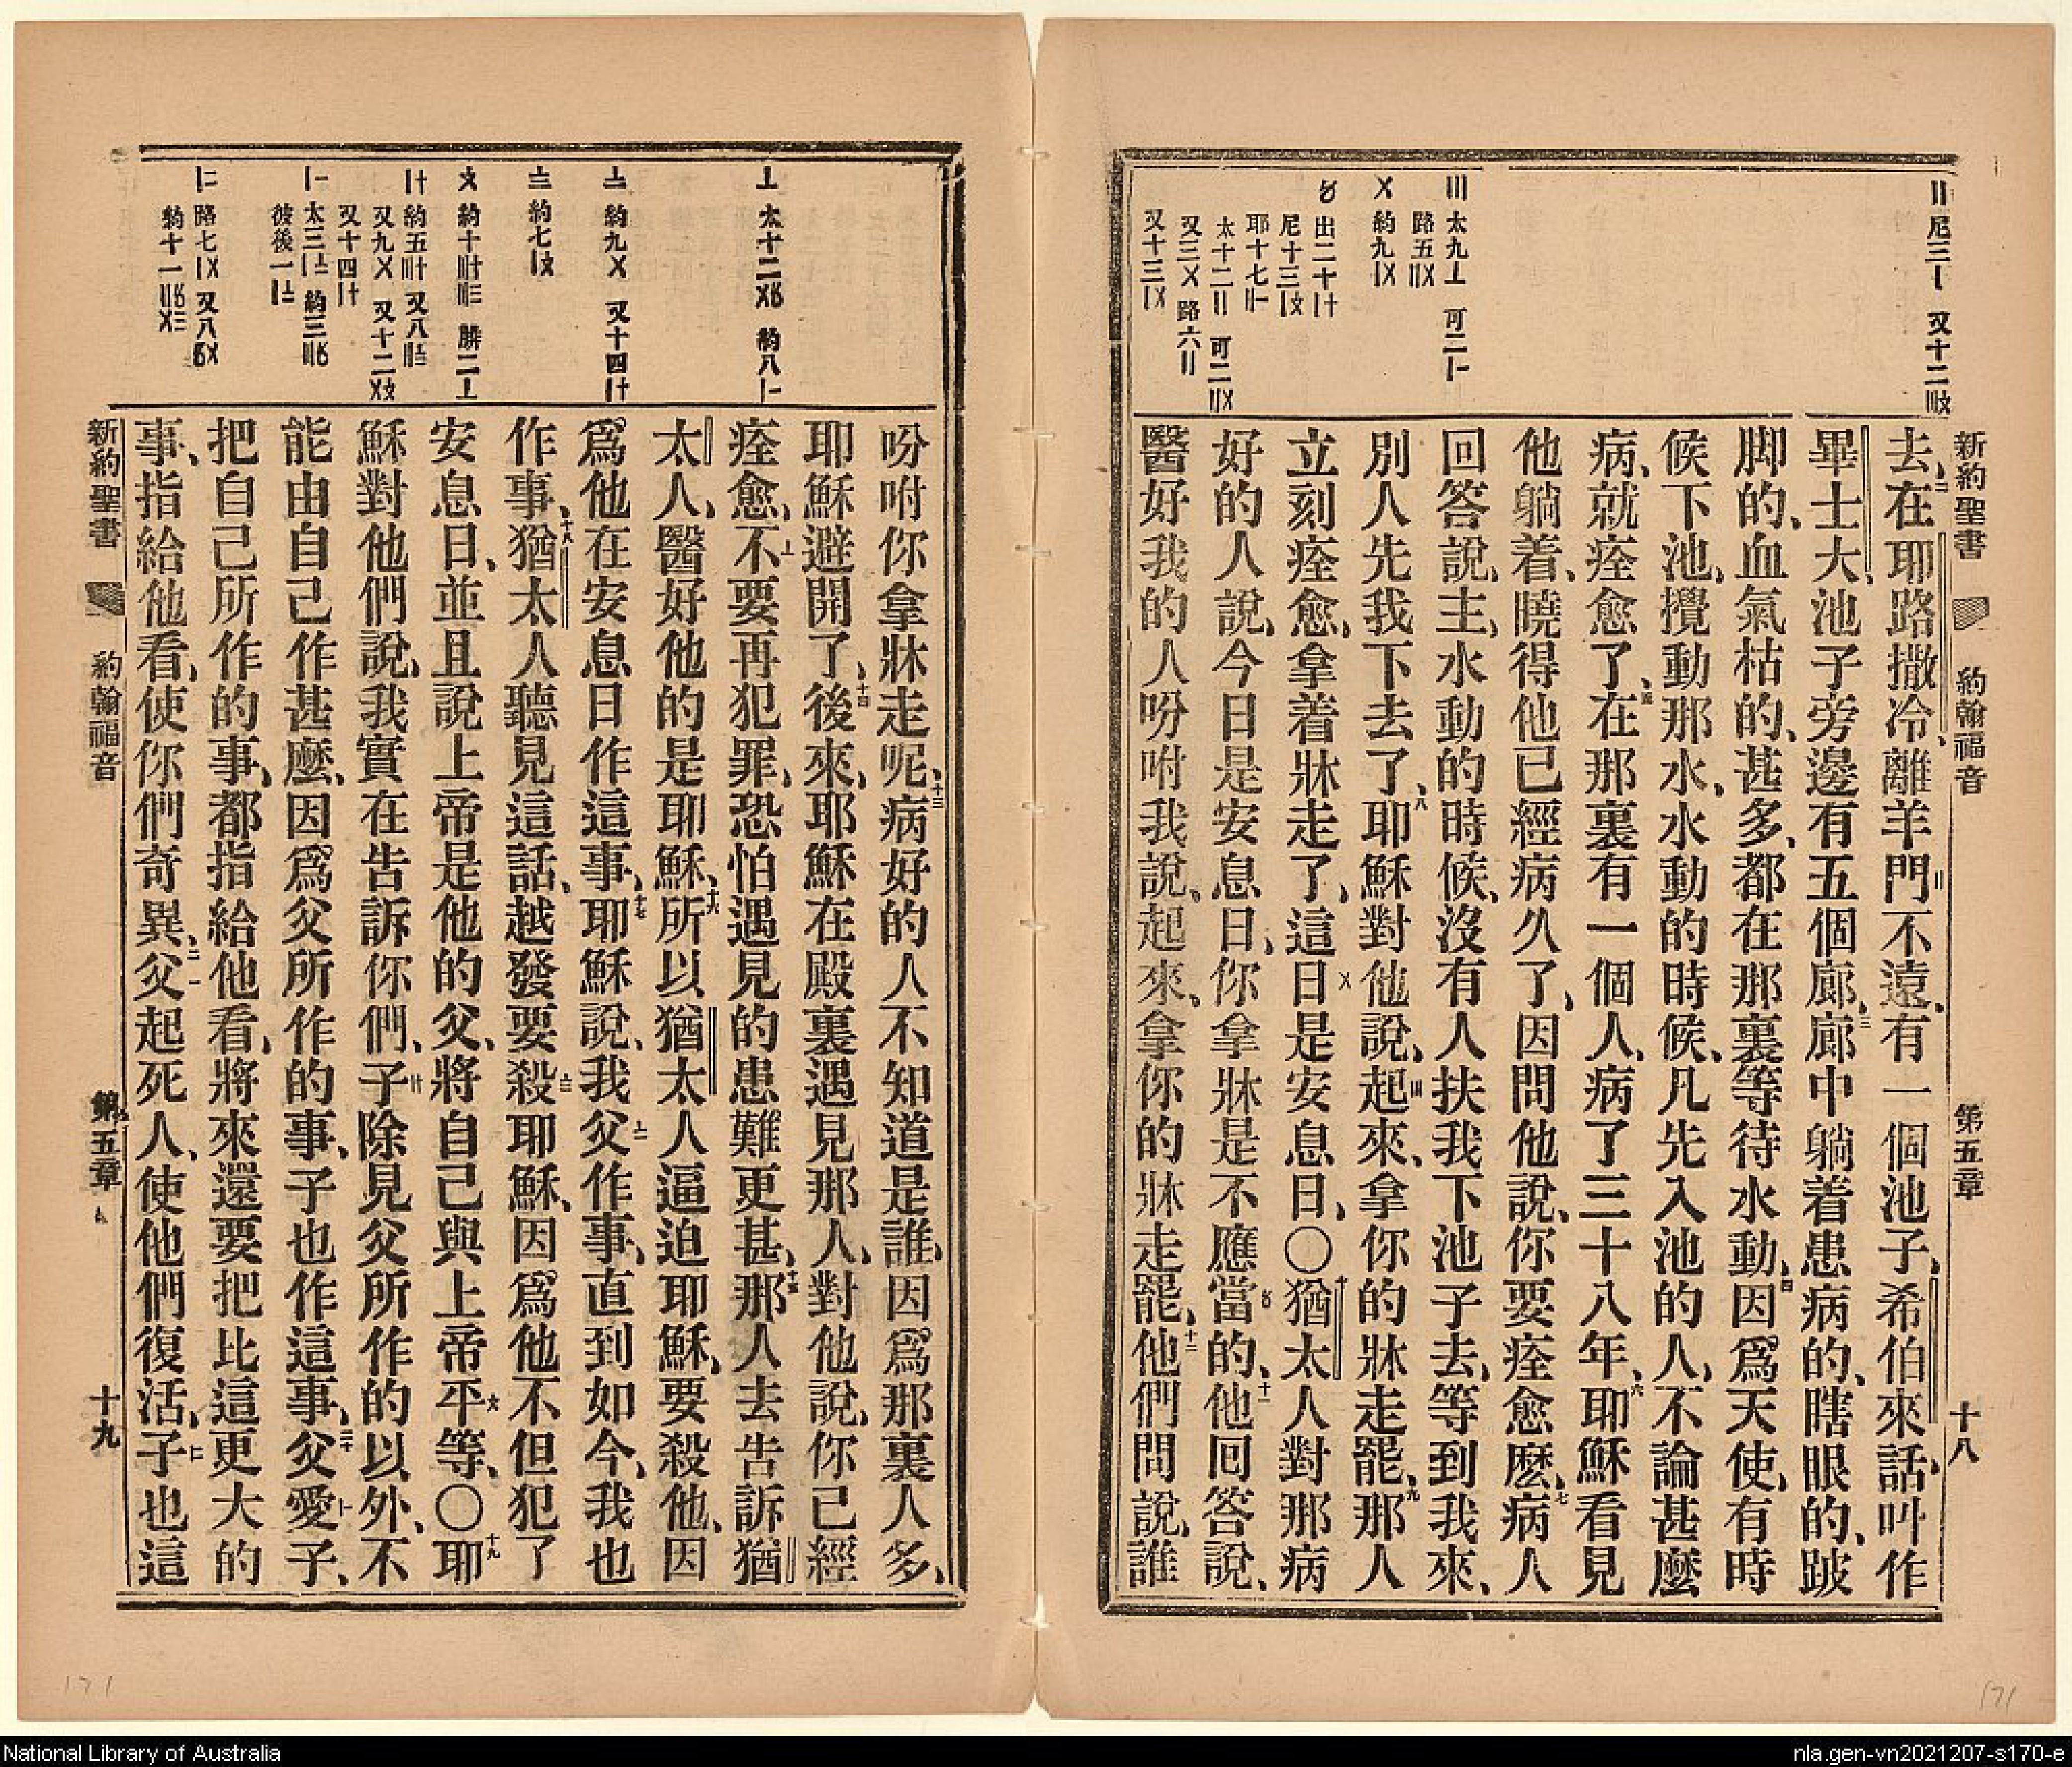 新約聖書 約翰福音 第五章 十八
去、二在耶路撒冷、離羊門不遠、有一個池子、希伯來話、叫作
畢士大、池子旁邊有五個廊、三廊中躺着患病的、瞎眼的、跛
脚的、血氣枯的、甚多、都在那裏等待水動、四因爲天使、有時
候下池、攪動那水、水動的時候、凡先入池的人、不論甚麼
病、就痊愈了、五在那裏有一個人、病了三十八年、六耶穌看見
他躺着、曉得他已經病久了、因問他說、你要痊愈麽、七病人
回答說、主、水動的時候、沒有人扶我下池子去、等到我來、
別人先我下去了、八耶穌對他說、起來、拿你的牀走罷、九那人
立刻痊愈、拿着牀走了、這日是安息日、〇十猶太人對那病
好的人說、今日是安息日、你拿牀是不應當的、十一他回答說、
醫好我的人吩咐我說、起來、拿你的牀走罷、十二他們問說、誰
〢尼三〡 又十二
〣太九〦 可二
路五
〤約九
〥出二十
尼十三
耶十七
太十二〢 可二
又三〤 路六〢
又十三
吩咐你拿牀走呢、十三病好的人不知道是誰、因爲那裏人多、
耶穌避開了、十四後來、耶穌在殿裏遇見那人、對他說、你已經
痊愈、不要再犯罪、恐怕遇見的患難更甚、十五那人去告訴猶
太人、醫好他的是耶穌、十六所以猶太人逼迫耶穌、要殺他、因
爲他在安息日作這事、十七耶穌說、我父作事、直到如今、我也
作事、十八猶太人聽見這話、越發要殺耶穌、因爲他不但犯了
安息日、並且說上帝是他的父、將自己與上帝平等、〇十九耶
穌對他們說、我實在告訴你們、子除見父所作的以外、不
能由自己作甚麼、因爲父所作的事、子也作這事、二十父愛子、
把自己所作的事、都指給他看、將來還要把比這更大的
事、指給他看、使你們奇異、二一父起死人、使他們復活、子也這
〦太十二 約八
〧約九〤 又十四
〨約七
〩約十 腓二〦
約五 又八
又九〤 又十二
又十四
太三 約三
彼後一
路七 又八
約十一
新約聖書 約翰福音 第五章 十九
171
171
National Library of Australia
nla.gen-vn2021207-s170-e